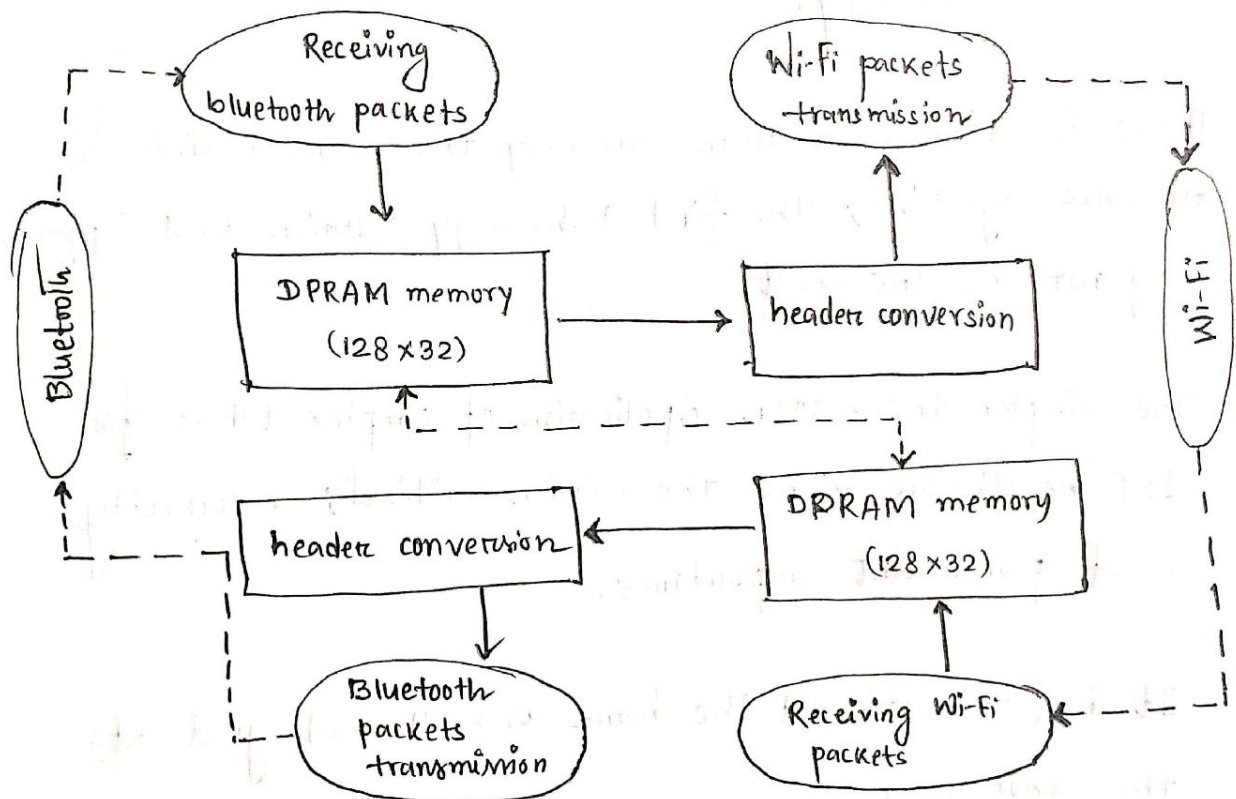 Receiving
bluetooth packets
Wi-Fi packets
transmission
Bluetooth
DPRAM memory
(128 x 32)
header conversion
Wi-Fi
header conversion
DPRAM memory
(128 x 32)
Bluetooth
packets
transmission
Receiving Wi-Fi
packets